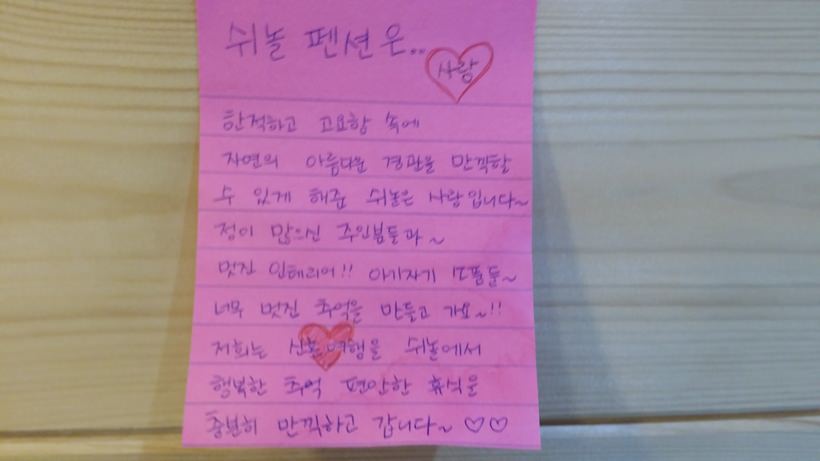 쉬놀 펜션은..
사랑
한적하고 고요함 속에
자연의 아름다운 경관을 만끽할
수 있게 해준 쉬놀은 사랑입니다~
정이 많으신 주인분들과~
멋진 인테리어!! 아기자기 소품들~
너무 멋진 추억을 만들고 가요~!!
저희는 신혼여행을 쉬놀에서
행복한 추억 편안한 휴식을
충분히 만끽하고 갑니다~ ♡♡